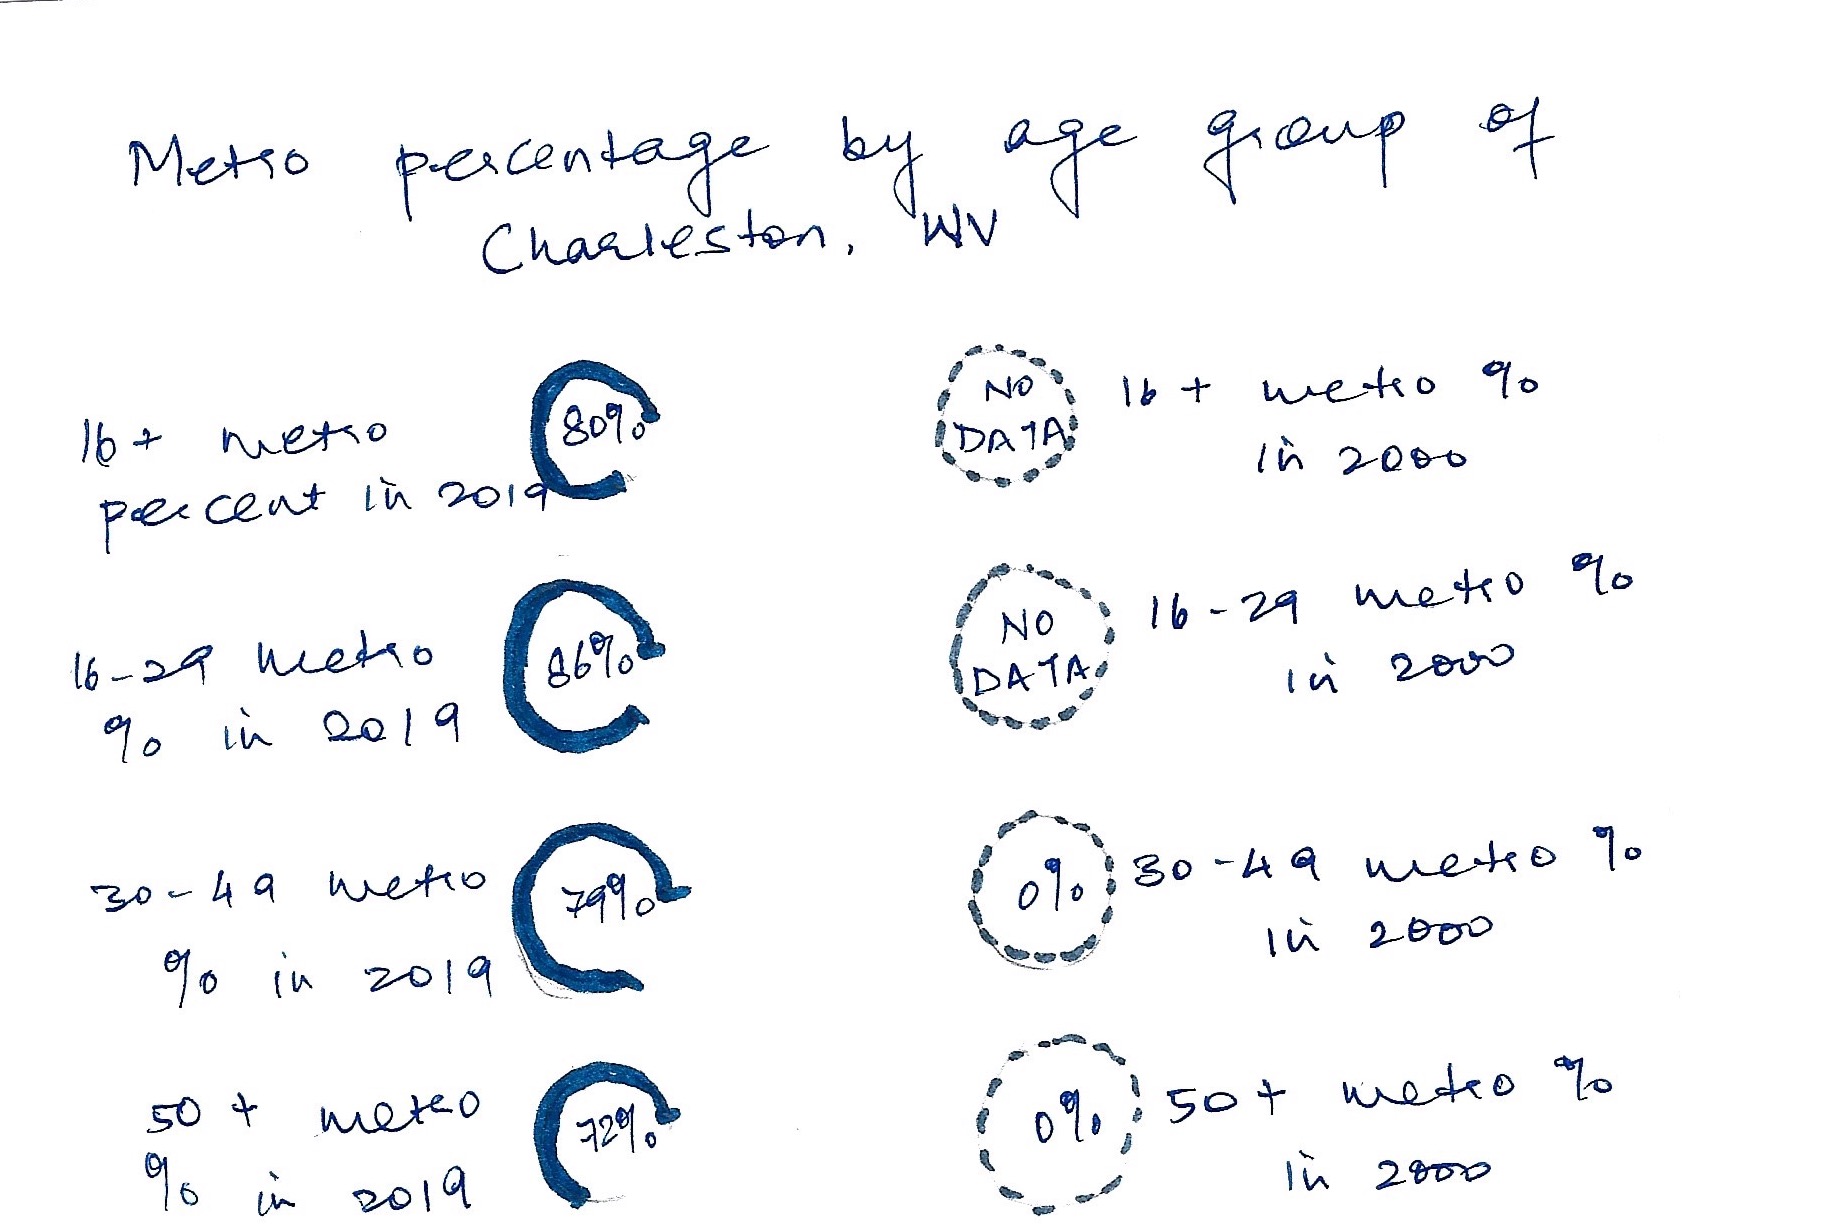 Metro percentage by age group of
Charleston, WV
16+ metro
percent in 2019
80%
NO
DATA
16+ metro %
in 2000
16-29 metro
% in 2019
86%
NO
DATA
16-29 metro %
in 2000
30-49 metro
% in 2019
79%
0%
30-49 metro %
in 2000
50+ metro
% in 2019
72%
0%
50+ metro %
in 2000